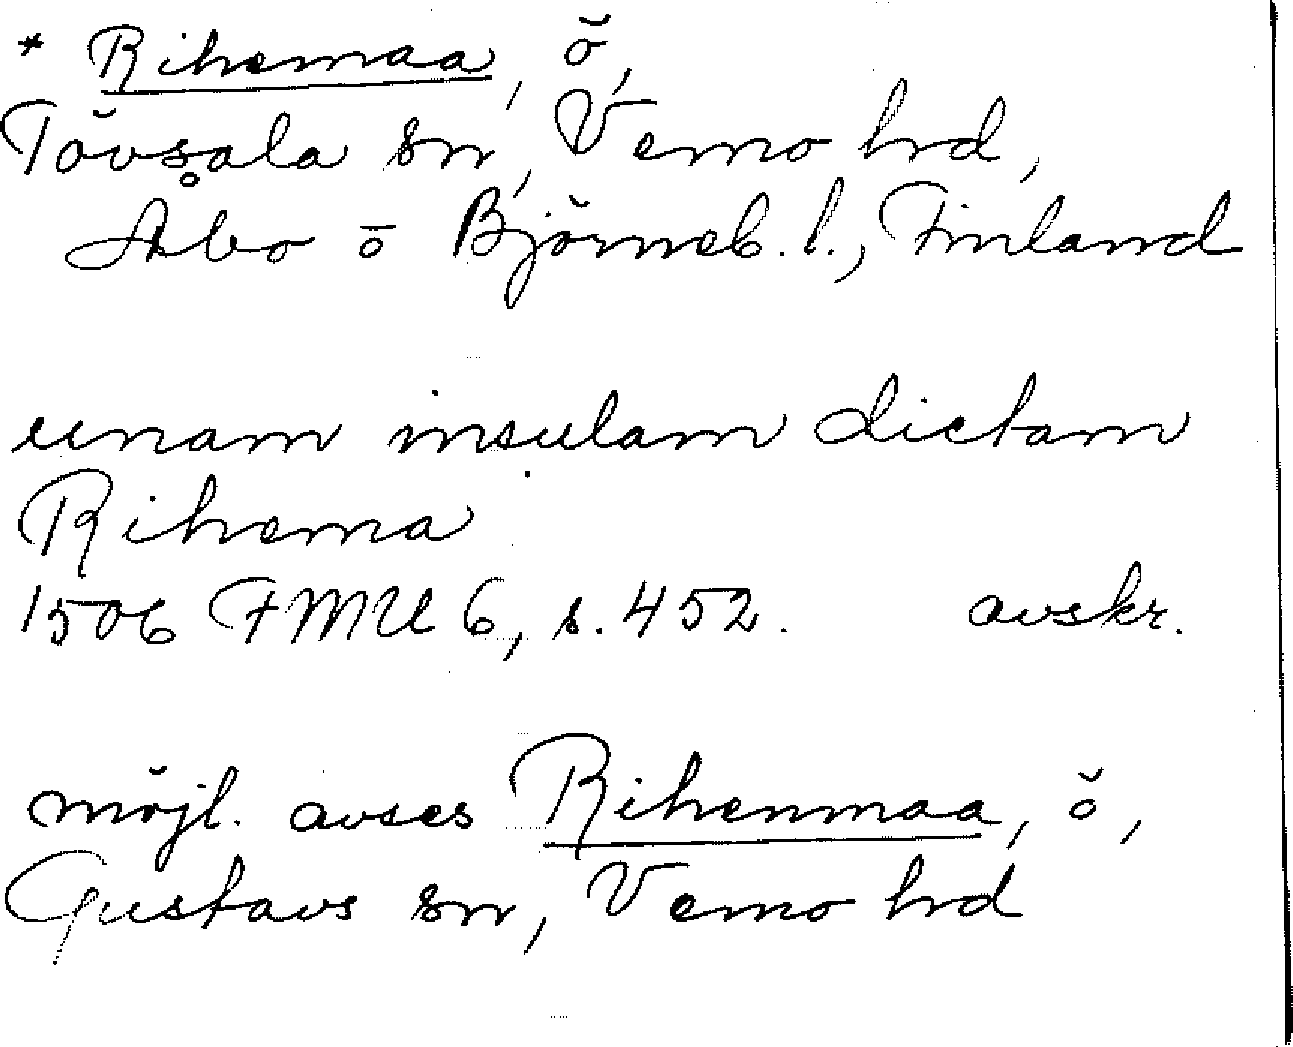 * Rihemaa, ö,
Tövsala sn, Vemo hrd,
Åbo o Björneb. l., Finland
unam insulam dictam
Rihema
1506 FMU 6, s. 452. avskr.
möjl. avses Rihenmaa, ö,
Gustavs sn, Vemo hrd